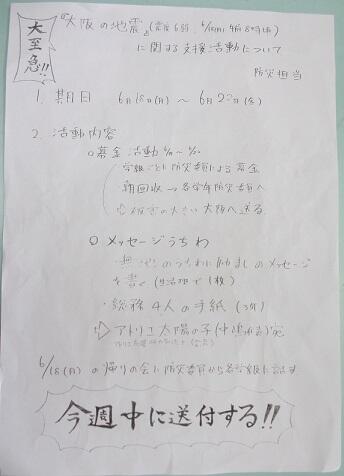 大至急!!
『大阪の地震』(震度6弱、6/18(月) 午前8時頃)
に関する支援活動について
防災担当
1. 期日 6月18日(月) ~ 6月22日(金)
2. 活動内容
○募金活動
学級ごとに防災委員による募金
朝回収→各学年防災委員へ
⇨ 被害の大きい大阪へ送る
○ メッセージうちわ
・無地のうちわに励ましのメッセージ
を書く (生活班で1枚)
・総務4人の手紙
⇨ アトリエ太陽の子 宛
6/18(月)の帰りの会に防災委員から各学級に話す
今週中に送付する!!